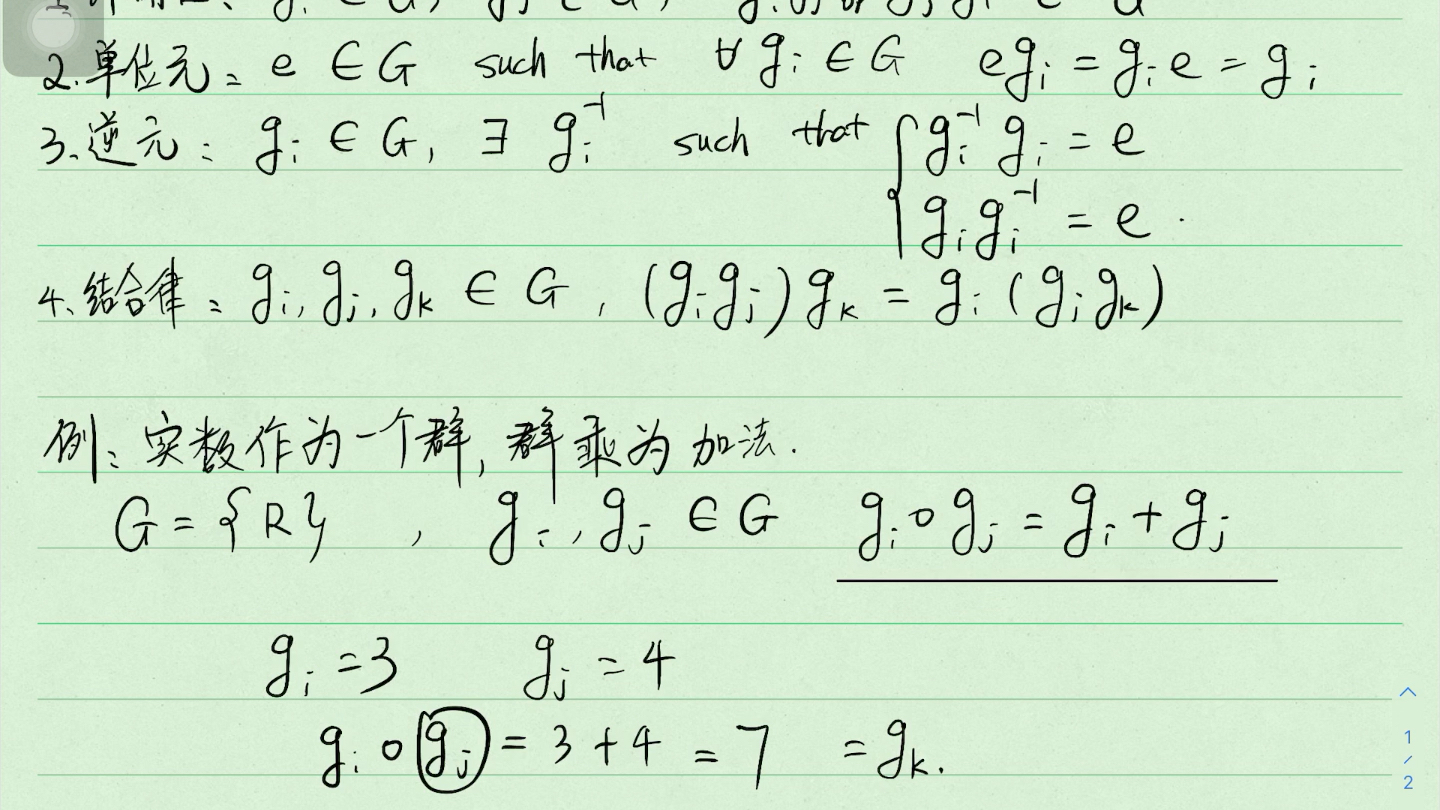 2.单位元: e ∈ G such that ∀ gᵢ ∈ G egᵢ = gᵢe = gᵢ
3.逆元: gᵢ ∈ G, ∃ gᵢ⁻¹ such that { gᵢ⁻¹ gᵢ = e
gᵢ gᵢ⁻¹ = e .
4.结合律: gᵢ, gⱼ, gₖ ∈ G, (gᵢgⱼ)gₖ = gᵢ(gⱼgₖ)
例: 实数作为一个群, 群乘为加法.
G = {R} , gᵢ, gⱼ ∈ G gᵢ∘gⱼ = gᵢ + gⱼ
gᵢ = 3 gⱼ = 4
gᵢ∘gⱼ = 3 + 4 = 7 = gₖ.
1/2